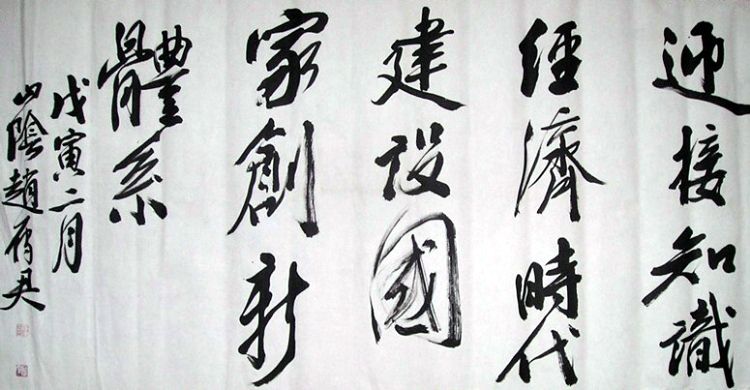 迎接知識
經濟時代
建设國
家創新
體系
戊寅二月
山陰趙雁君